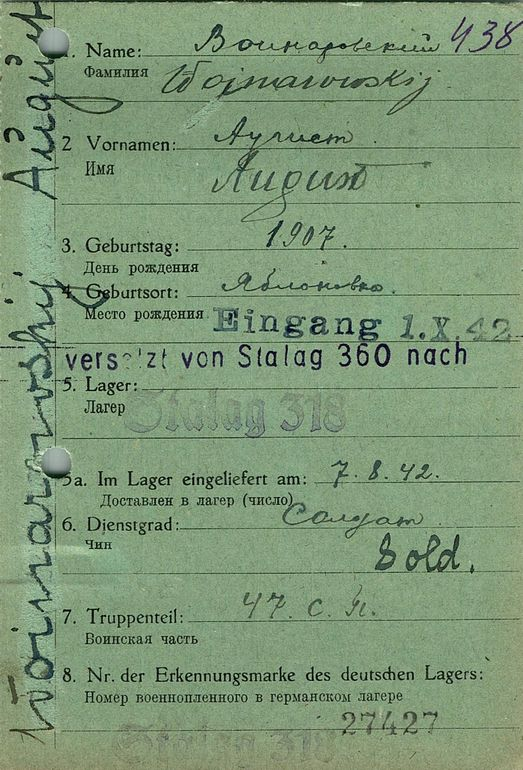 Woinarovskij August
1. Name: Воинаровский 438
Фамилия Wojnarowskij
2 Vornamen: Аугист
Имя August
3. Geburtstag: 1907.
День рождения
4. Geburtsort: Яблоновко.
Место рождения Eingang 1.X.42
versetzt von Stalag 360 nach
5. Lager:
Лагер Stalag 318
5a. Im Lager eingeliefert am: 7.8.42.
Доставлен в лагер (число)
6. Dienstgrad: Солдат
Чин Sold.
7. Truppenteil: 47. с. п.
Воинская часть
8. Nr. der Erkennungsmarke des deutschen Lagers:
Номер военнопленного в германском лагере
27427
Stalag 318